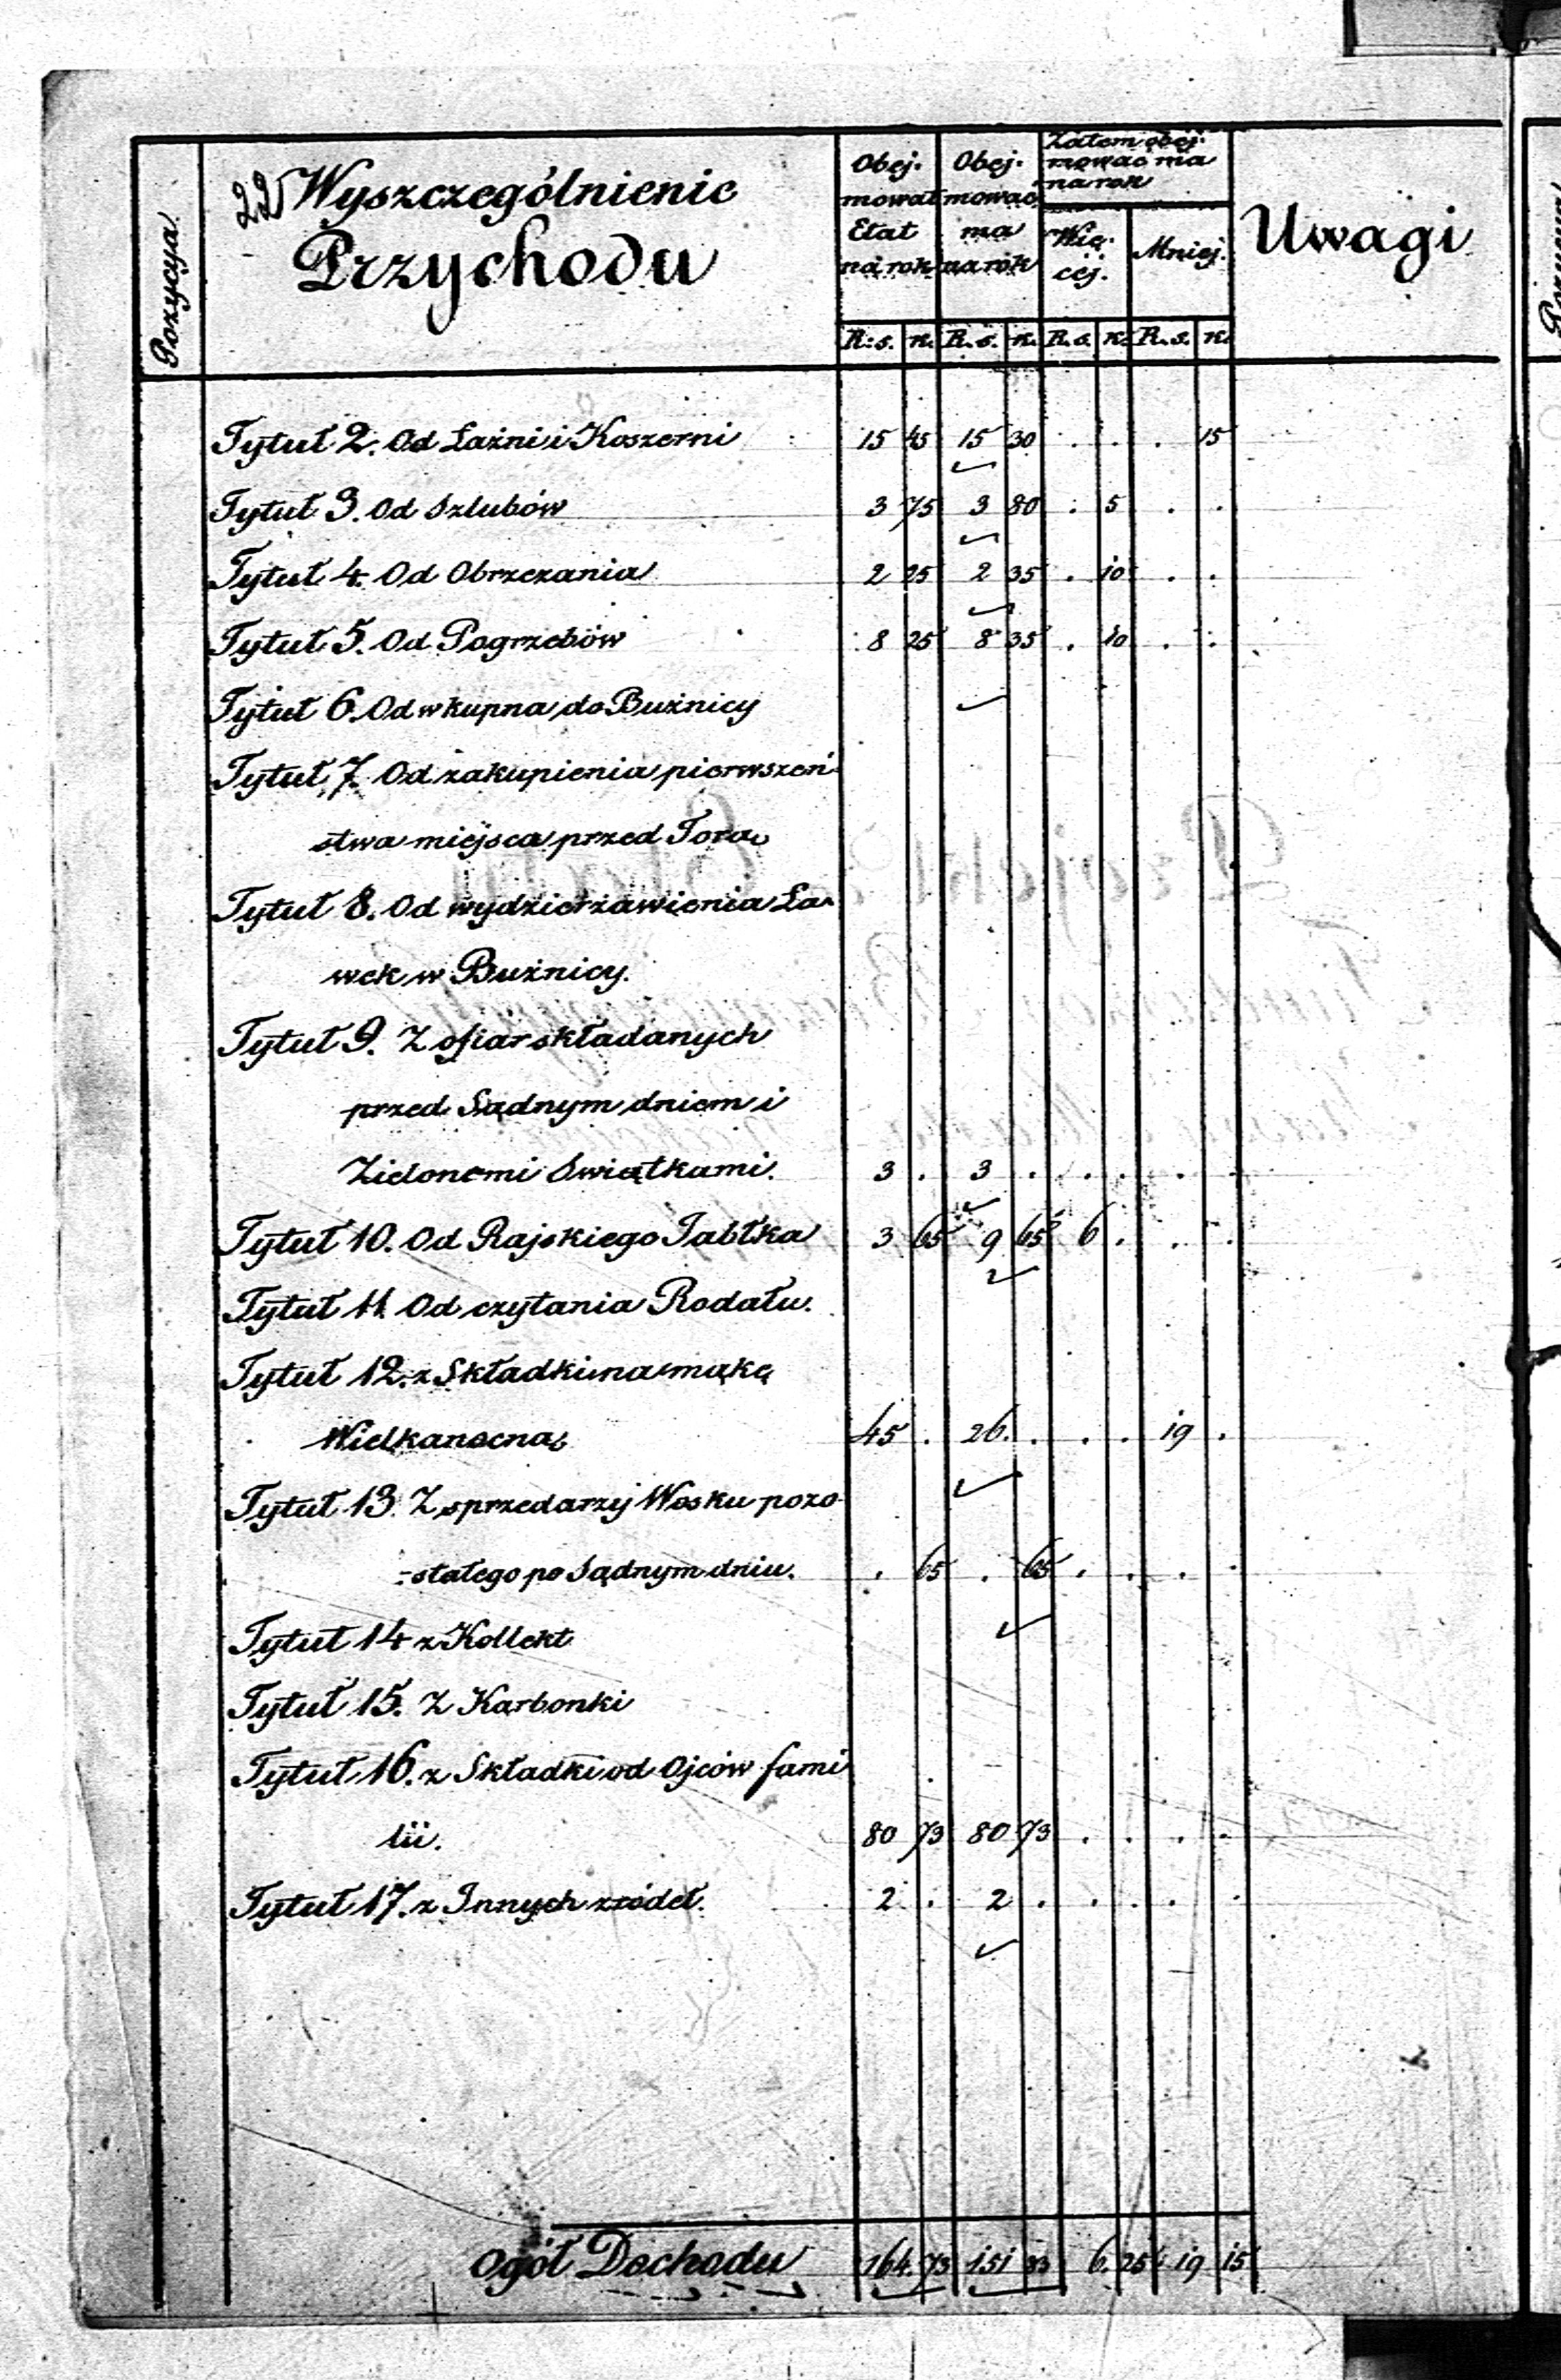 Pozycya
22 Wyszczególnienie
Przychodu
Obej-
mował
Etat
na rok
Obej-
mować
ma
na rok
Zatem obej-
mować ma
na rok
Wię-
cej.
Mniej.
Uwagi
R: s. k. R. s. k. R. s. k. R. s. k.
Tytuł 2. Od Łaźni i Koszerni 15 45 15 30 . . . 15
Tytuł 3. Od Szlubów 3 75 3 80 . 5 . .
Tytuł 4. Od Obrzezania 2 25 2 35 . 10 . .
Tytuł 5. Od Pogrzebów 8 25 8 35 . 10 . .
Tytuł 6. Od wkupna do Bużnicy
Tytuł 7. Od zakupienia pierwszeń-
stwa miejsca przed Torą
Tytuł 8. Od wydzierżawienia Ła-
wek w Bużnicy.
Tytuł 9. Z ofiar składanych
przed Sądnym dniem i
Zielonemi Swiątkami. 3 . 3 . . . . .
Tytuł 10. Od Rajskiego Jabłka 3 65 9 65 6 . . .
Tytuł 11. Od czytania Rodału.
Tytuł 12. z Składki na mąkę
Wielkanocną 45 . 26 . . . 19 .
Tytuł 13. Z sprzedarzy Wosku pozo-
-stałego po Sądnym dniu. . 65 . 65 . . . .
Tytuł 14 z Kollekt
Tytuł 15. Z Karbonki
Tytuł 16. z Składki od Ojców fami
lii. 80 73 80 73 . . . .
Tytuł 17. z Innych zródeł. 2 . 2 . . . . .
Ogół Dochodu 164. 73 151 83 6. 25 19 15